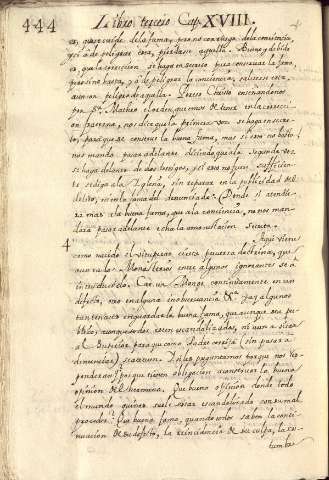 444 Libro tercero Cap. XVIII.
de la fama, pero no con riesgo de la conciencia,
y si à de peligrar una, pierdase aquella. Bueno y debido
es, que la correccion se haga en secreto para conservar la fama,
pero sino basta, y à de peligrar la conciencia, salvese esta,
aunque peligre aquella. Pero Christo enseñandonos
por Sn. Matheo el orden que emos de tener en la correccion
fraterna, nos dice que la primera vez se haga en secreto,
para que se conserve la buena fama, mas si esto no basta
nos manda pasar adelante diciendo que la segunda vez
se haga delante de dos testigos, y si esto no fuere sufficiente
se diga à la Iglesia, sin reparar en la publicidad del
delito, ni en la fama del denunciado. Donde si atendiera
mas à la buena fama, que à la conciencia, no nos mandara
pasar adelante echa la amonestacion secreta.
4 Aqui viene
como nacido el vituperar cierta perversa doctrina, que
en los Monasterios entre algunos ignorantes se à
introducido. Cae un Monge continuamente en un
defecto, ò en alguna inobservancia &c. y ay algunos
tan necios en guardarle la buena fama, que aunque sea publico,
aunque todos esten escandalizados, ni aun à
al Superior para que como Padre corrija (sin pasar à
denunciar) se atreven. Si les preguntamos porque nos responderan:
porque tienen obligacion à conservar la buena
opinion del Hermano. Que buena opinion donde todo
el mundo quiças suele estar escandalizado con su mal
proceder? Que buena fama, quando todos saben la continuacion
de su defecto, la reincidencia de su culpa, la costumbre